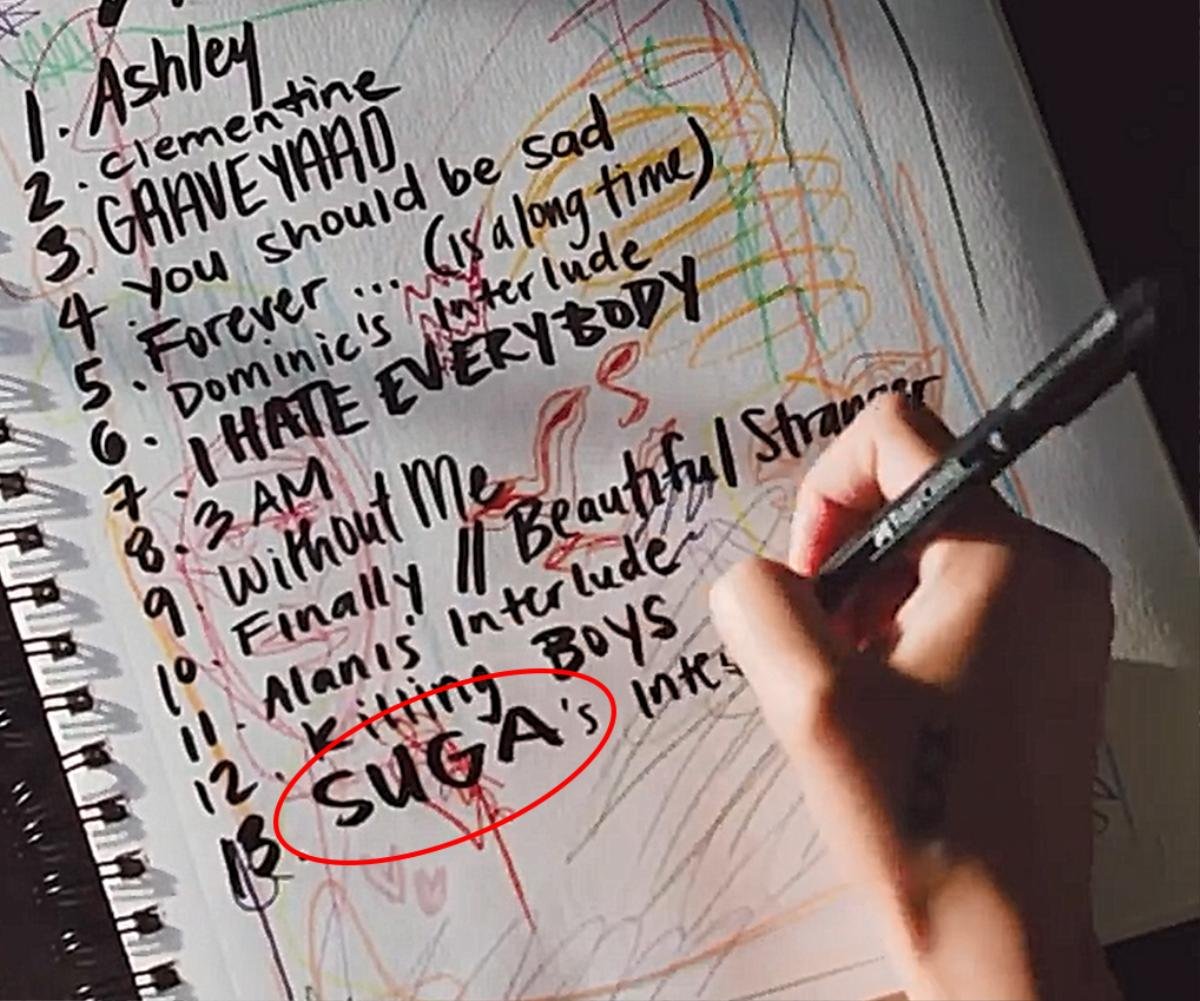 1. Ashley
2. clementine
3. GRAVEYARD
4. you should be sad
5. Forever ... (is a long time)
6. Dominic's Interlude
7. I HATE EVERYBODY
8. 3 AM
9. Without Me
10. Finally || Beautiful Stranger
11. Alanis' Interlude
12. Killing Boys
13. SUGA's Inte